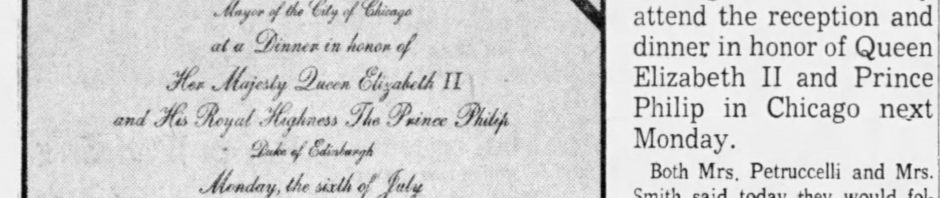 Mayor of the City of Chicago
at a Dinner in honor of
Her Majesty Queen Elizabeth II
and His Royal Highness The Prince Philip
Duke of Edinburgh
Monday, the sixth of July
attend the reception and
dinner in honor of Queen
Elizabeth II and Prince
Philip in Chicago next
Monday.
Both Mrs. Petruccelli and Mrs.
Smith said today they would fol-